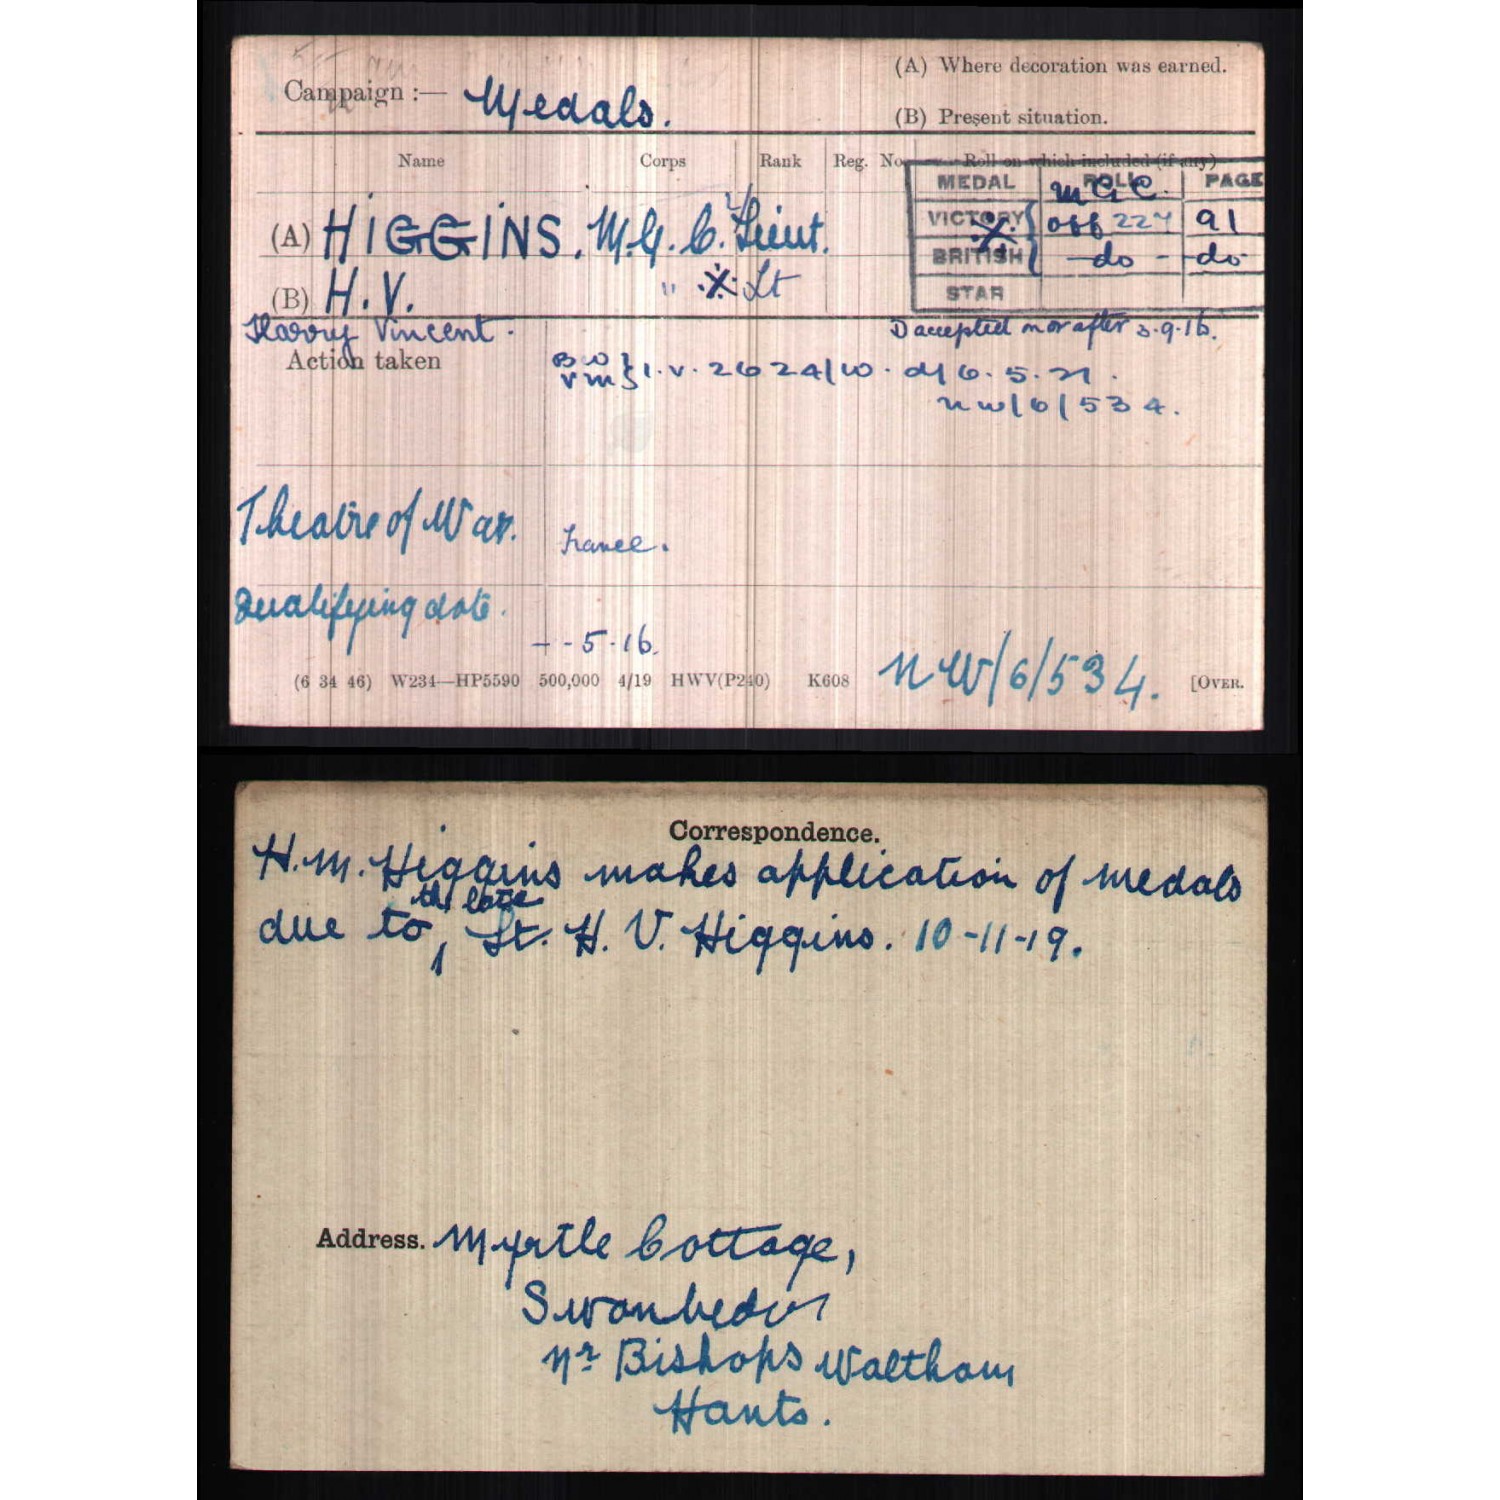 Campaign :— Medals.
(A) Where decoration was earned.
(B) Present situation.
Name Corps Rank Reg. No. Roll on which included (if any)
MEDAL ROLL PAGE
M.G.C.
(A) HIGGINS. M.G.C. 2/Lieut.
VICTORY off 227 91
BRITISH -do- -do-
(B) H.V. " Lt
STAR
Harry Vincent.
D accepted on or after 3.9.16.
Action taken
B W } I.V. 2624/W. d/ 6.5.21.
V M
NW/6/534.
Theatre of War. France.
Qualifying date.
- -5-16.
(6 34 46) W234—HP5590 500,000 4/19 HWV(P240) K608
NW/6/534.
[OVER.
Correspondence.
H.M. Higgins makes application of medals
the late
due to, Lt. H. V. Higgins. 10-11-19.
Address. Myrtle Cottage,
Nr Bishops Waltham
Hants.